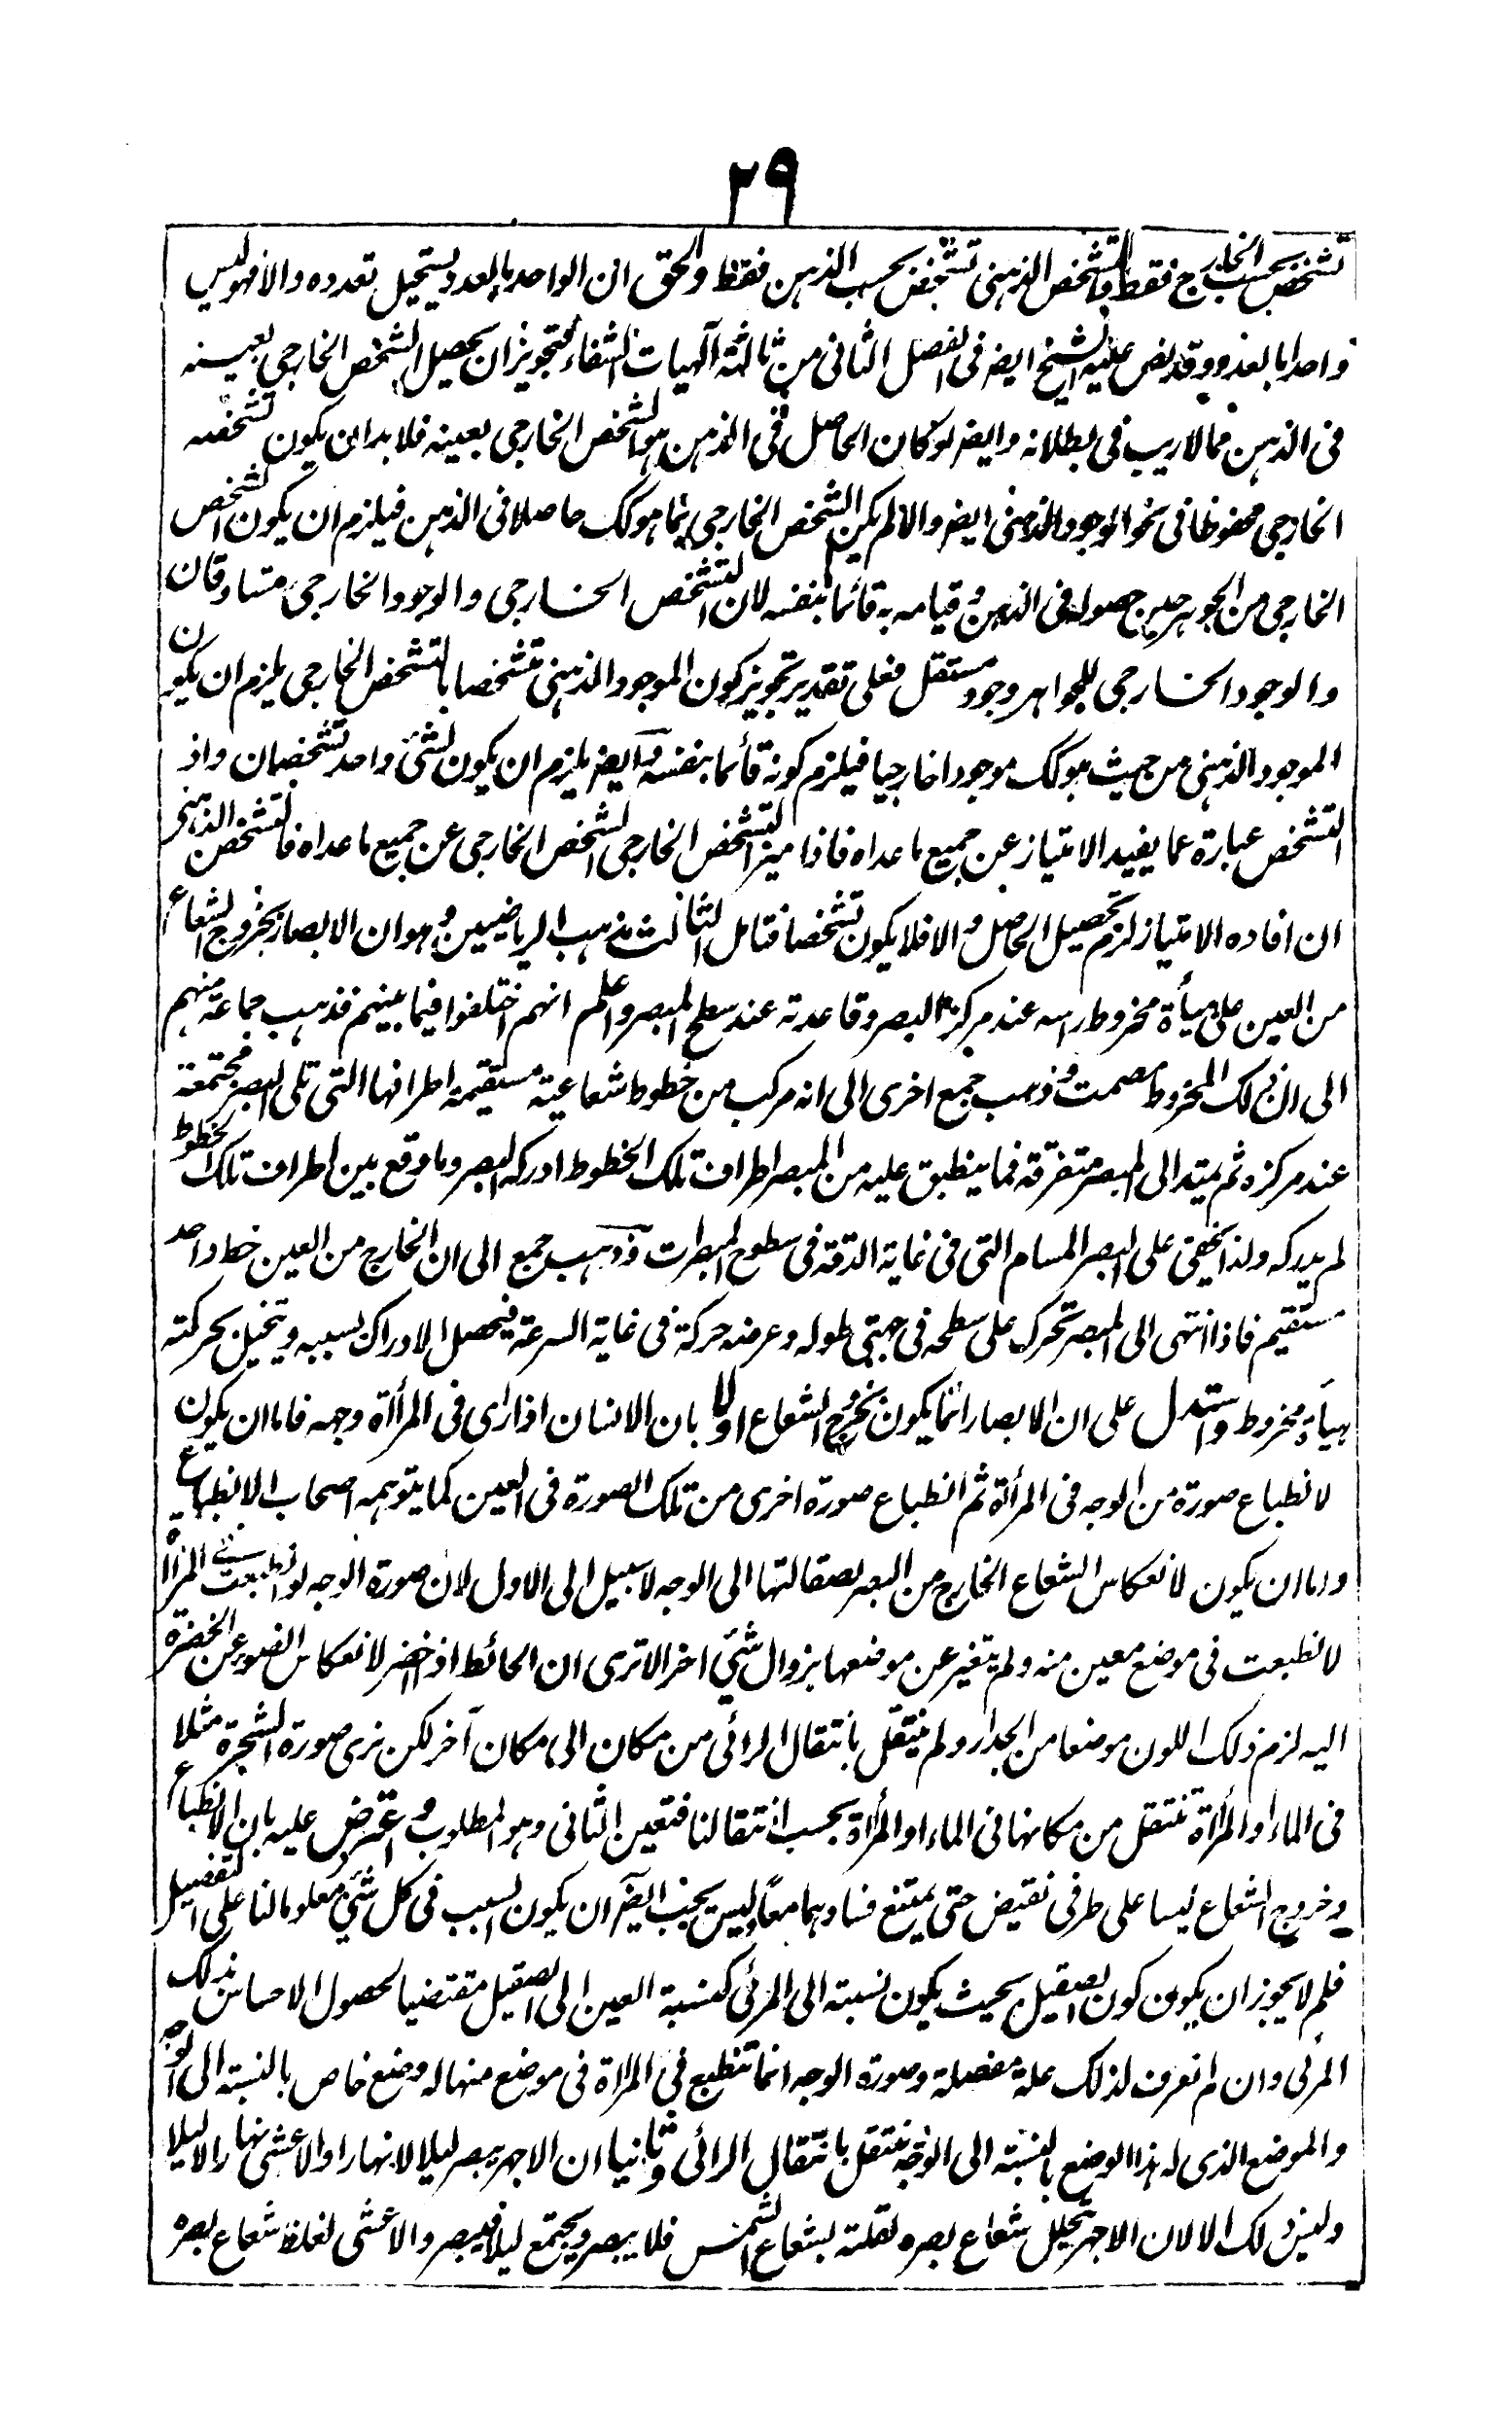 ٢٩
تشخص بحسب الخارج فقط والتشخص الذهنى تشخص بحسب الذهن فقط والحق ان الواحد بالعدد يستحيل تعدده والا فهو ليس
واحدا بالعدد وقد نص عليه الشيخ ايضا فى الفصل الثانى من ثالثة آلهيات الشفاء فتجويز ان يحصل الشخص الخارجى بعينه
فى الذهن مما لا ريب فى بطلانه وايضا لو كان الحاصل فى الذهن هو الشخص الخارجى بعينه فلا بد ان يكون تشخصه
الخارجى محفوظا فى نحو الوجود الذهنى ايضا والا لم يكن الشخص الخارجى بما هو كك حاصلا فى الذهن فيلزم ان يكون الشخص
الخارجى من الجوهر حين حصوله فى الذهن وقيامه به قائما بنفسه لان التشخص الخارجى والوجود الخارجى متساوقان
والوجود الخارجى للجواهر وجود مستقل فعلى تقدير تجويز كون الموجود الذهنى متشخصا بالتشخص الخارجى يلزم ان يكون
الموجود الذهنى من حيث هو كك موجودا خارجيا فيلزم كونه قائما بنفسه وايضا يلزم ان يكون لشئ واحد تشخصان واذ
التشخص عبارة عما يفيد الامتياز عن جميع ما عداه فاذا ميز التشخص الخارجى الشخص الخارجى عن جميع ما عداه فالتشخص الذهنى
ان افاده الامتياز لزم تحصيل الحاصل والا فلا يكون تشخصا فتامل الثالث مذهب الرياضيين وهو ان الابصار بخروج الشعاع
من العين على هيأة مخروط راسه عند مركز البصر وقاعدته عند سطح المبصر واعلم انهم اختلفوا فيما بينهم فذهب جماعة منهم
الى ان ذلك المخروط مصمت وذهب جمع اخرى الى انه مركب من خطوط شعاعية مستقيمة اطرافها التى تلى البصر مجتمعة
عند مركزه ثم يمتد الى المبصر متفرقة فما ينطبق عليه من المبصر اطراف تلك الخطوط ادركه البصر وما وقع بين اطراف تلك الخطوط
لم يدركه ولذا يخفى على البصر المسام التى فى غاية الدقة فى سطوح المبصرات وذهب جمع الى ان الخارج من العين خط واحد
مستقيم فاذا انتهى الى المبصر تحرك على سطحه فى جهتى طوله وعرضه حركة فى غاية السرعة فيحصل الادراك بسببه ويتخيل بحركته
هيأة مخروط واستدل على ان الابصار انما يكون بخروج الشعاع اولا بان الانسان اذا راى فى المرأة وجهه فاما ان يكون
لانطباع صورة من الوجه فى المرأة ثم انطباع صورة اخرى من تلك الصورة فى العين كما يتوهمه اصحاب الانطباع
واما ان يكون لانعكاس الشعاع الخارج من البصر لصقالتها الى الوجه لا سبيل الى الاول لان صورة الوجه لو انطبعت فى المرأة
لانطبعت فى موضع معين منه ولم يتغير عن موضعها بزوال شئ اخر الا ترى ان الحائط اذا اخضر لانعكاس الضوء عن الخضرة
اليه لزم ذلك اللون موضعا من الجدار ولم ينتقل بانتقال الرائى من مكان الى مكان آخر لكن نرى صورة الشجرة مثلا
فى الماء او المرأة تنتقل من مكانها فى الماء او المرأة بحسب انتقالنا فتعين الثانى وهو المطلوب واعترض عليه بان الانطباع
وخروج الشعاع ليسا على طرفى نقيض حتى يمتنع فسادهما معا وليس يجب ايضا ان يكون السبب فى كل شئ معلوما لنا على التفصيل
فلم لا يجوز ان يكون كون الصقيل بحيث يكون نسبته الى المرئى كنسبة العين الى الصقيل مقتضيا لحصول الاحساس بذلك
المرئى وان لم نعرف لذلك علة مفصلة وصورة الوجه انما تنطبع فى المرأة فى موضع منها له وضع خاص بالنسبة الى الوجه
والموضع الذى له هذا الوضع بالنسبة الى الوجه ينتقل بانتقال الرائى وثانيا ان الاجهر يبصر ليلا لا نهارا والاعشى نهارا لا ليلا
وليس ذلك الا لان الاجهر يتحلل شعاع بصره لقلته بشعاع الشمس فلا يبصر ويجتمع ليلا فيبصر والاعشى لغلظ شعاع بصره